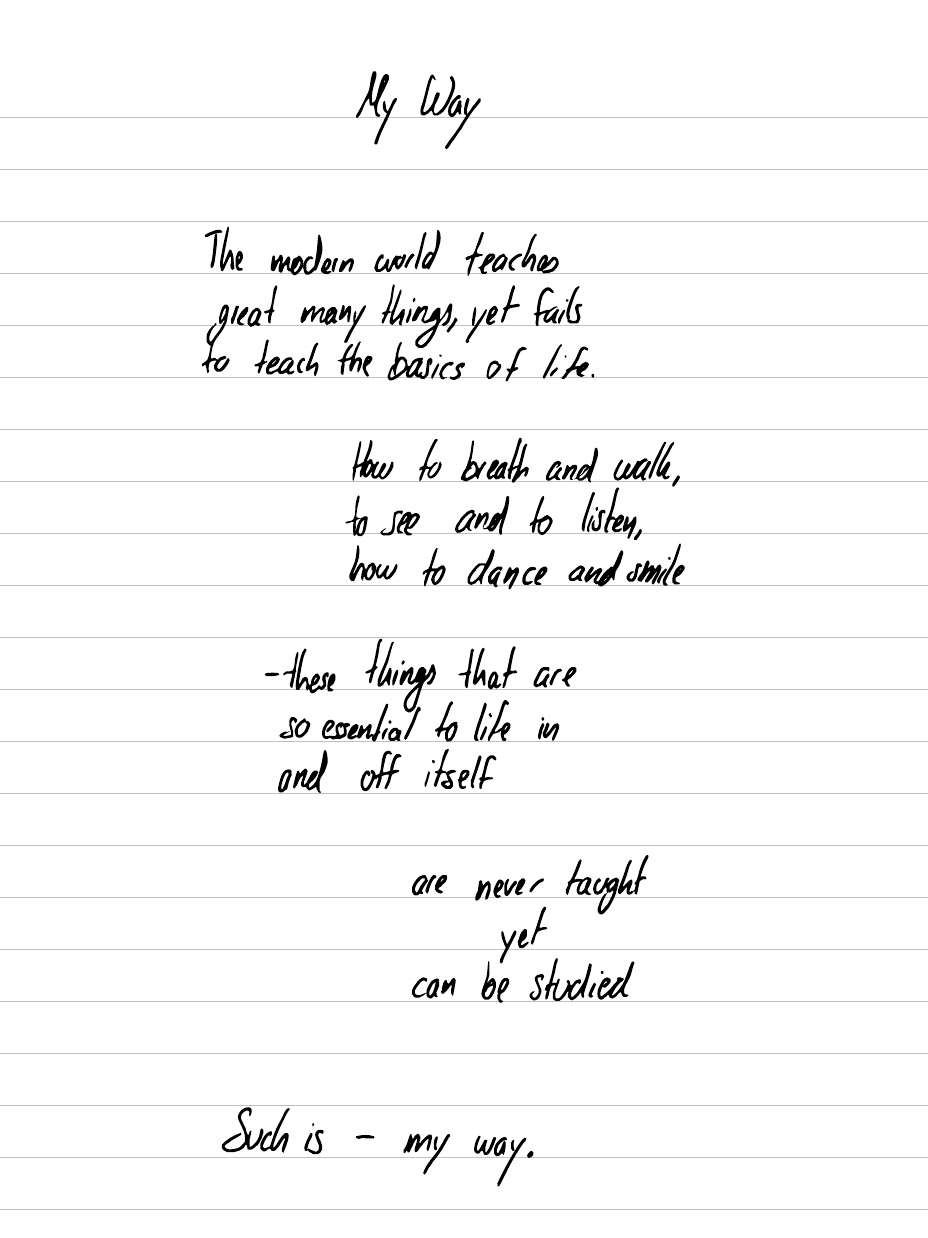 My Way
The modern world teaches
great many things, yet fails
to teach the basics of life.
How to breath and walk,
to see and to listen,
how to dance and smile
-these things that are
so essential to life in
and off itself
are never taught
yet
can be studied
Such is - my way.